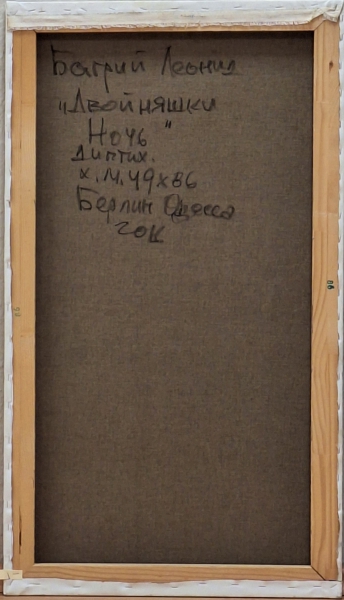 Багрий Леонид
"Двойняшки
Ночь"
Диптих.
х.м. 49х86
Берлин Одесса